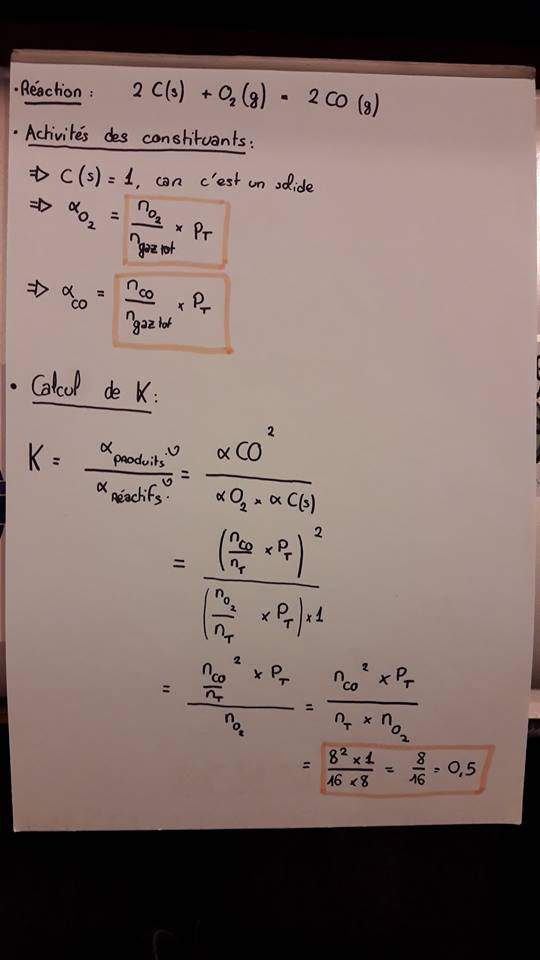 • Réaction : 2 C(s) + O₂(g) = 2 CO (g)
• Activités des constituants :
⇒ C(s) = 1, car c'est un solide
⇒ α_O₂ = n_O₂ / n_gaz tot × P_T
⇒ α_CO = n_CO / n_gaz tot × P_T
• Calcul de K :
K = α_produits^ν / α_Réactifs^ν = αCO² / αO₂ × αC(s)
= (n_CO / n_T × P_T)² / (n_O₂ / n_T × P_T) × 1
= n_CO² / n_T × P_T / n_O₂ = n_CO² × P_T / n_T × n_O₂
= 8² × 1 / 16 × 8 = 8 / 16 = 0,5